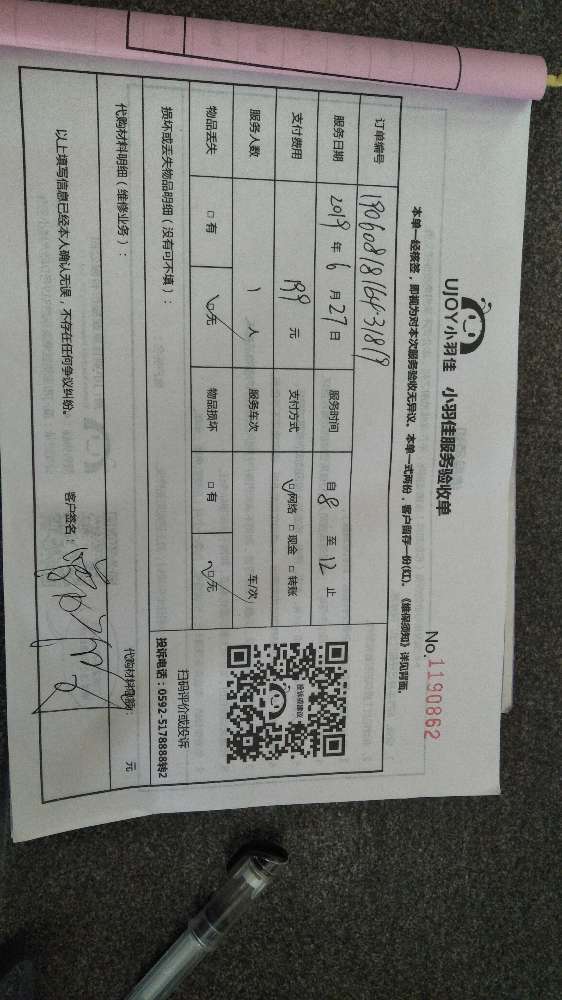 UJOY小羽佳 小羽佳服务验收单
No.1190862
本单一经核签，即视为对本次服务验收无异议。本单一式两份，客户留存一份(红)。《维保须知》详见背面。
订单编号
服务日期 2019 年 6 月 27 日 服务时间 自 8 至 12 止
支付费用 199 元 支付方式 ☑网络 □现金 □转账
服务人数 1 人 服务车次 车/次
物品丢失 □有 ☑无 物品损坏 □有 ☑无
投诉或建议
扫码评价或投诉
投诉电话：0592-5178888转2
损坏或丢失物品明细（没有可不填）：
代购材料明细（维修业务）： 代购材料 元
以上填写信息已经本人确认无误，不存在任何争议纠纷。 客户签名：